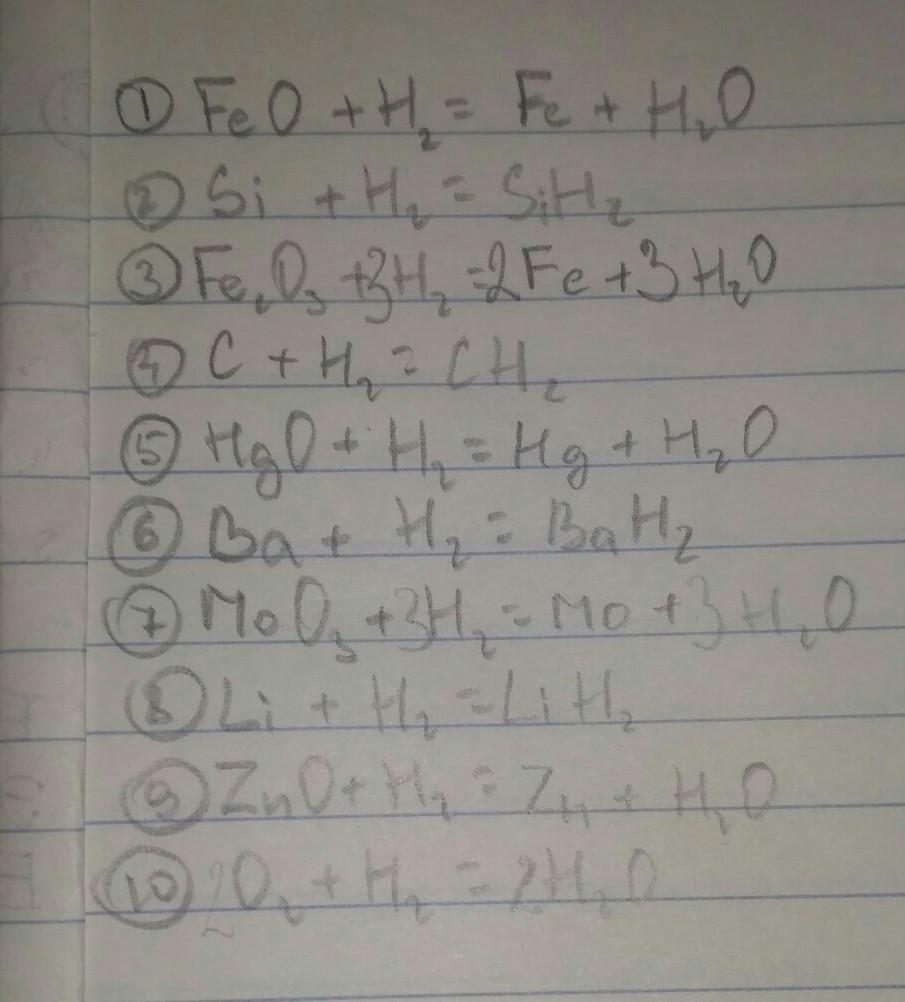 ① FeO + H₂ = Fe + H₂O
② Si + H₂ = SiH₂
③ Fe₂O₃ + 3H₂ = 2Fe + 3H₂O
④ C + H₂ = CH₂
⑤ HgO + H₂ = Hg + H₂O
⑥ Ba + H₂ = BaH₂
⑦ MoO₃ + 3H₂ = Mo + 3H₂O
⑧ Li + H₂ = LiH₂
⑨ ZnO + H₂ = Zn + H₂O
⑩ 2O₂ + H₂ = 2H₂O